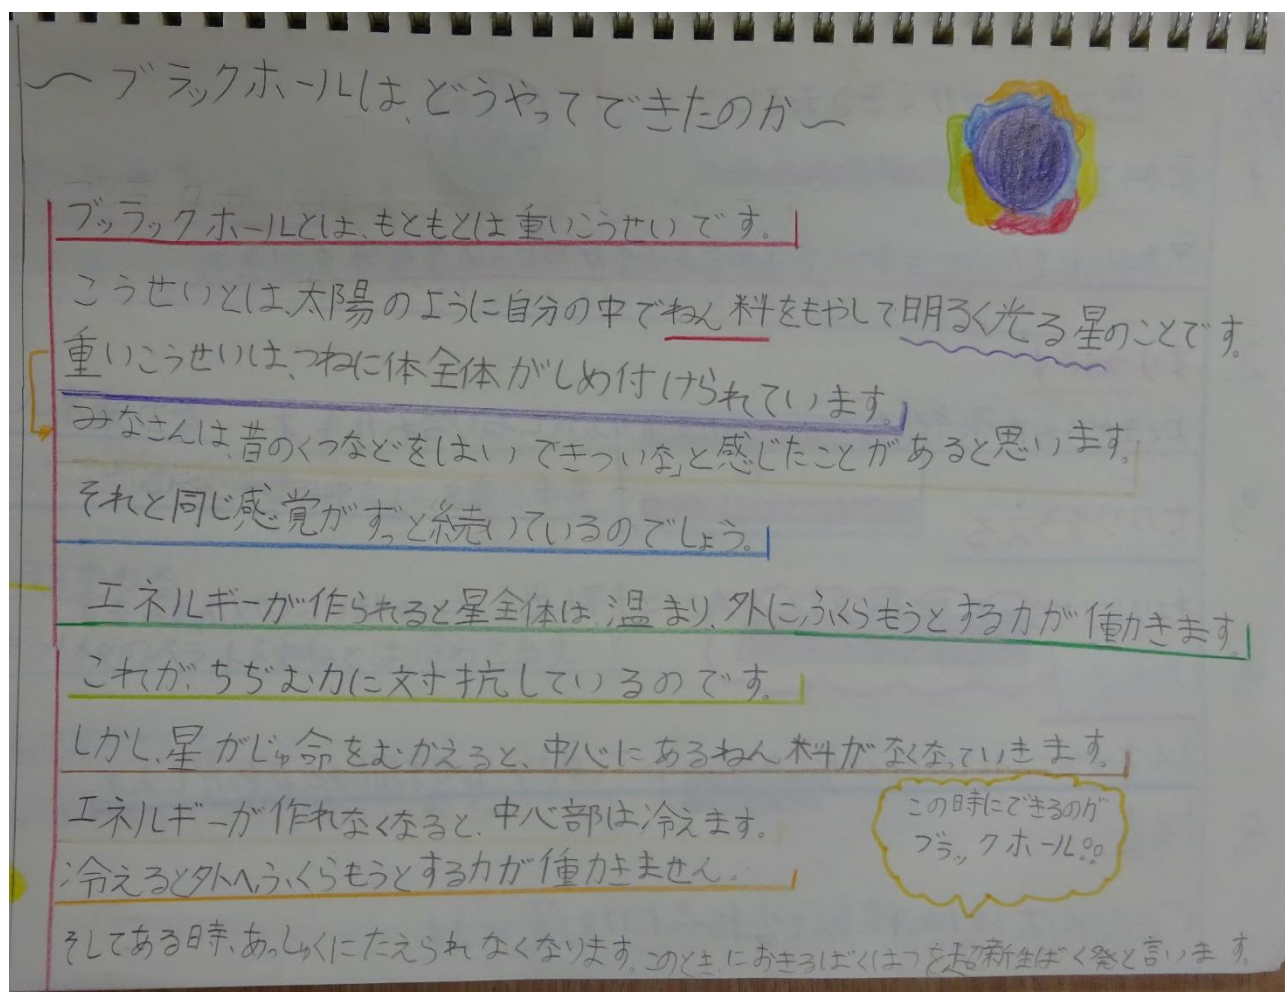 〜ブラックホールは、どうやってできたのか〜
ブッラックホールとは、もともとは重いこうせいです。
こうせいとは、太陽のように自分の中でねん料をもやして明るく光る星のことです。
重いこうせいは、つねに体全体がしめ付けられています。
みなさんは、昔のくつなどをはいて「きついな」と感じたことがあると思います。
それと同じ感覚がずっと続いているのでしょう。
エネルギーが作られると星全体は、温まり、外にふくらもうとする力が働きます。
これが、ちぢむ力に対抗しているのです。
しかし、星がじゅ命をむかえると、中心にあるねん料がなくなっていきます。
エネルギーが作れなくなると、中心部は冷えます。
冷えると外へふくらもうとする力が働きません。
この時にできるのが
ブラックホール!!
そしてある時、あっしゅくにたえられなくなります。このとき、におきるばくはつを超新生ばく発と言います。